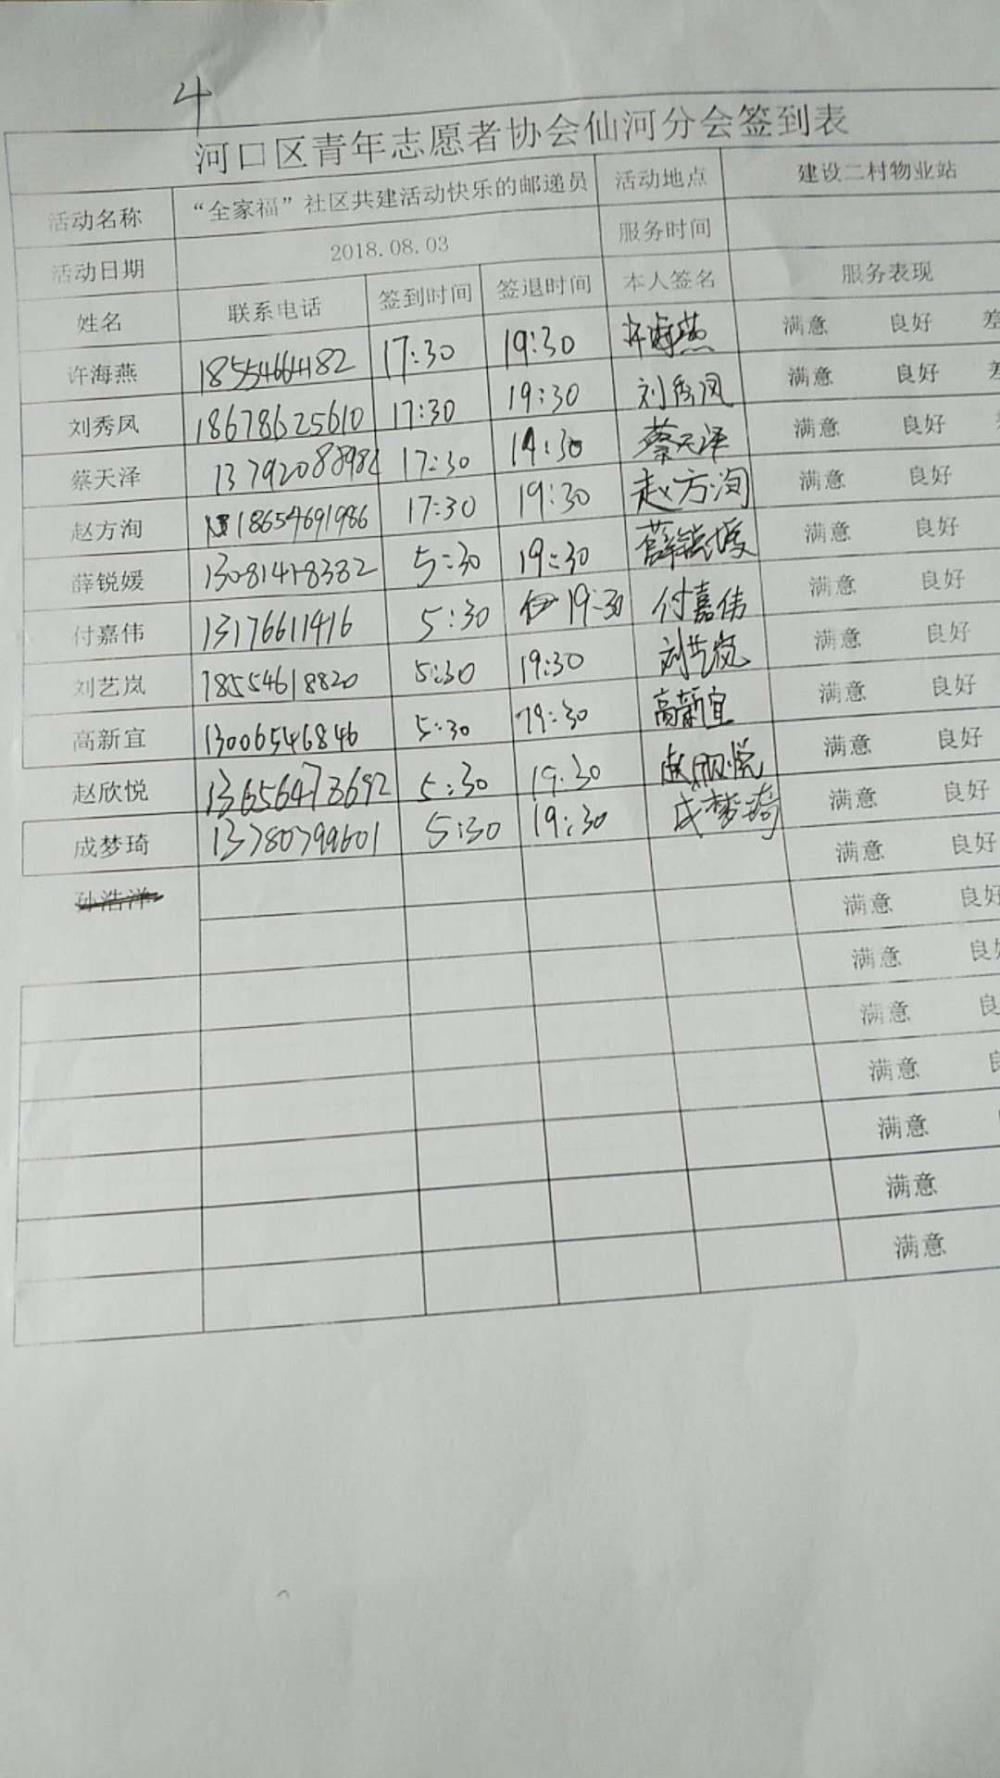 4
河口区青年志愿者协会仙河分会签到表
活动名称 “全家福”社区共建活动快乐的邮递员 活动地点 建设二村物业站
活动日期 2018.08.03 服务时间
姓名 联系电话 签到时间 签退时间 本人签名 服务表现
许海燕 18554664182 17:30 19:30 许海燕 满意 良好 差
刘秀凤 18678625610 17:30 19:30 刘秀凤 满意 良好 差
蔡天泽 17:30 19:30 蔡天泽 满意 良好
赵方洵 18654691986 17:30 19:30 赵方洵 满意 良好
薛锐媛 13081418382 5:30 19:30 薛锐媛 满意 良好
付嘉伟 13176611416 5:30 19:30 付嘉伟 满意 良好
刘艺岚 18554618820 5:30 19:30 刘艺岚 满意 良好
高新宜 13006546846 5:30 19:30 高新宜 满意 良好
赵欣悦 13656478692 5:30 19:30 满意 良好
成梦琦 13780799601 5:30 19:30 成梦琦 满意 良好
孙浩洋 满意 良好
满意 良好
满意 良好
满意 良
满意
满意
满意
满意